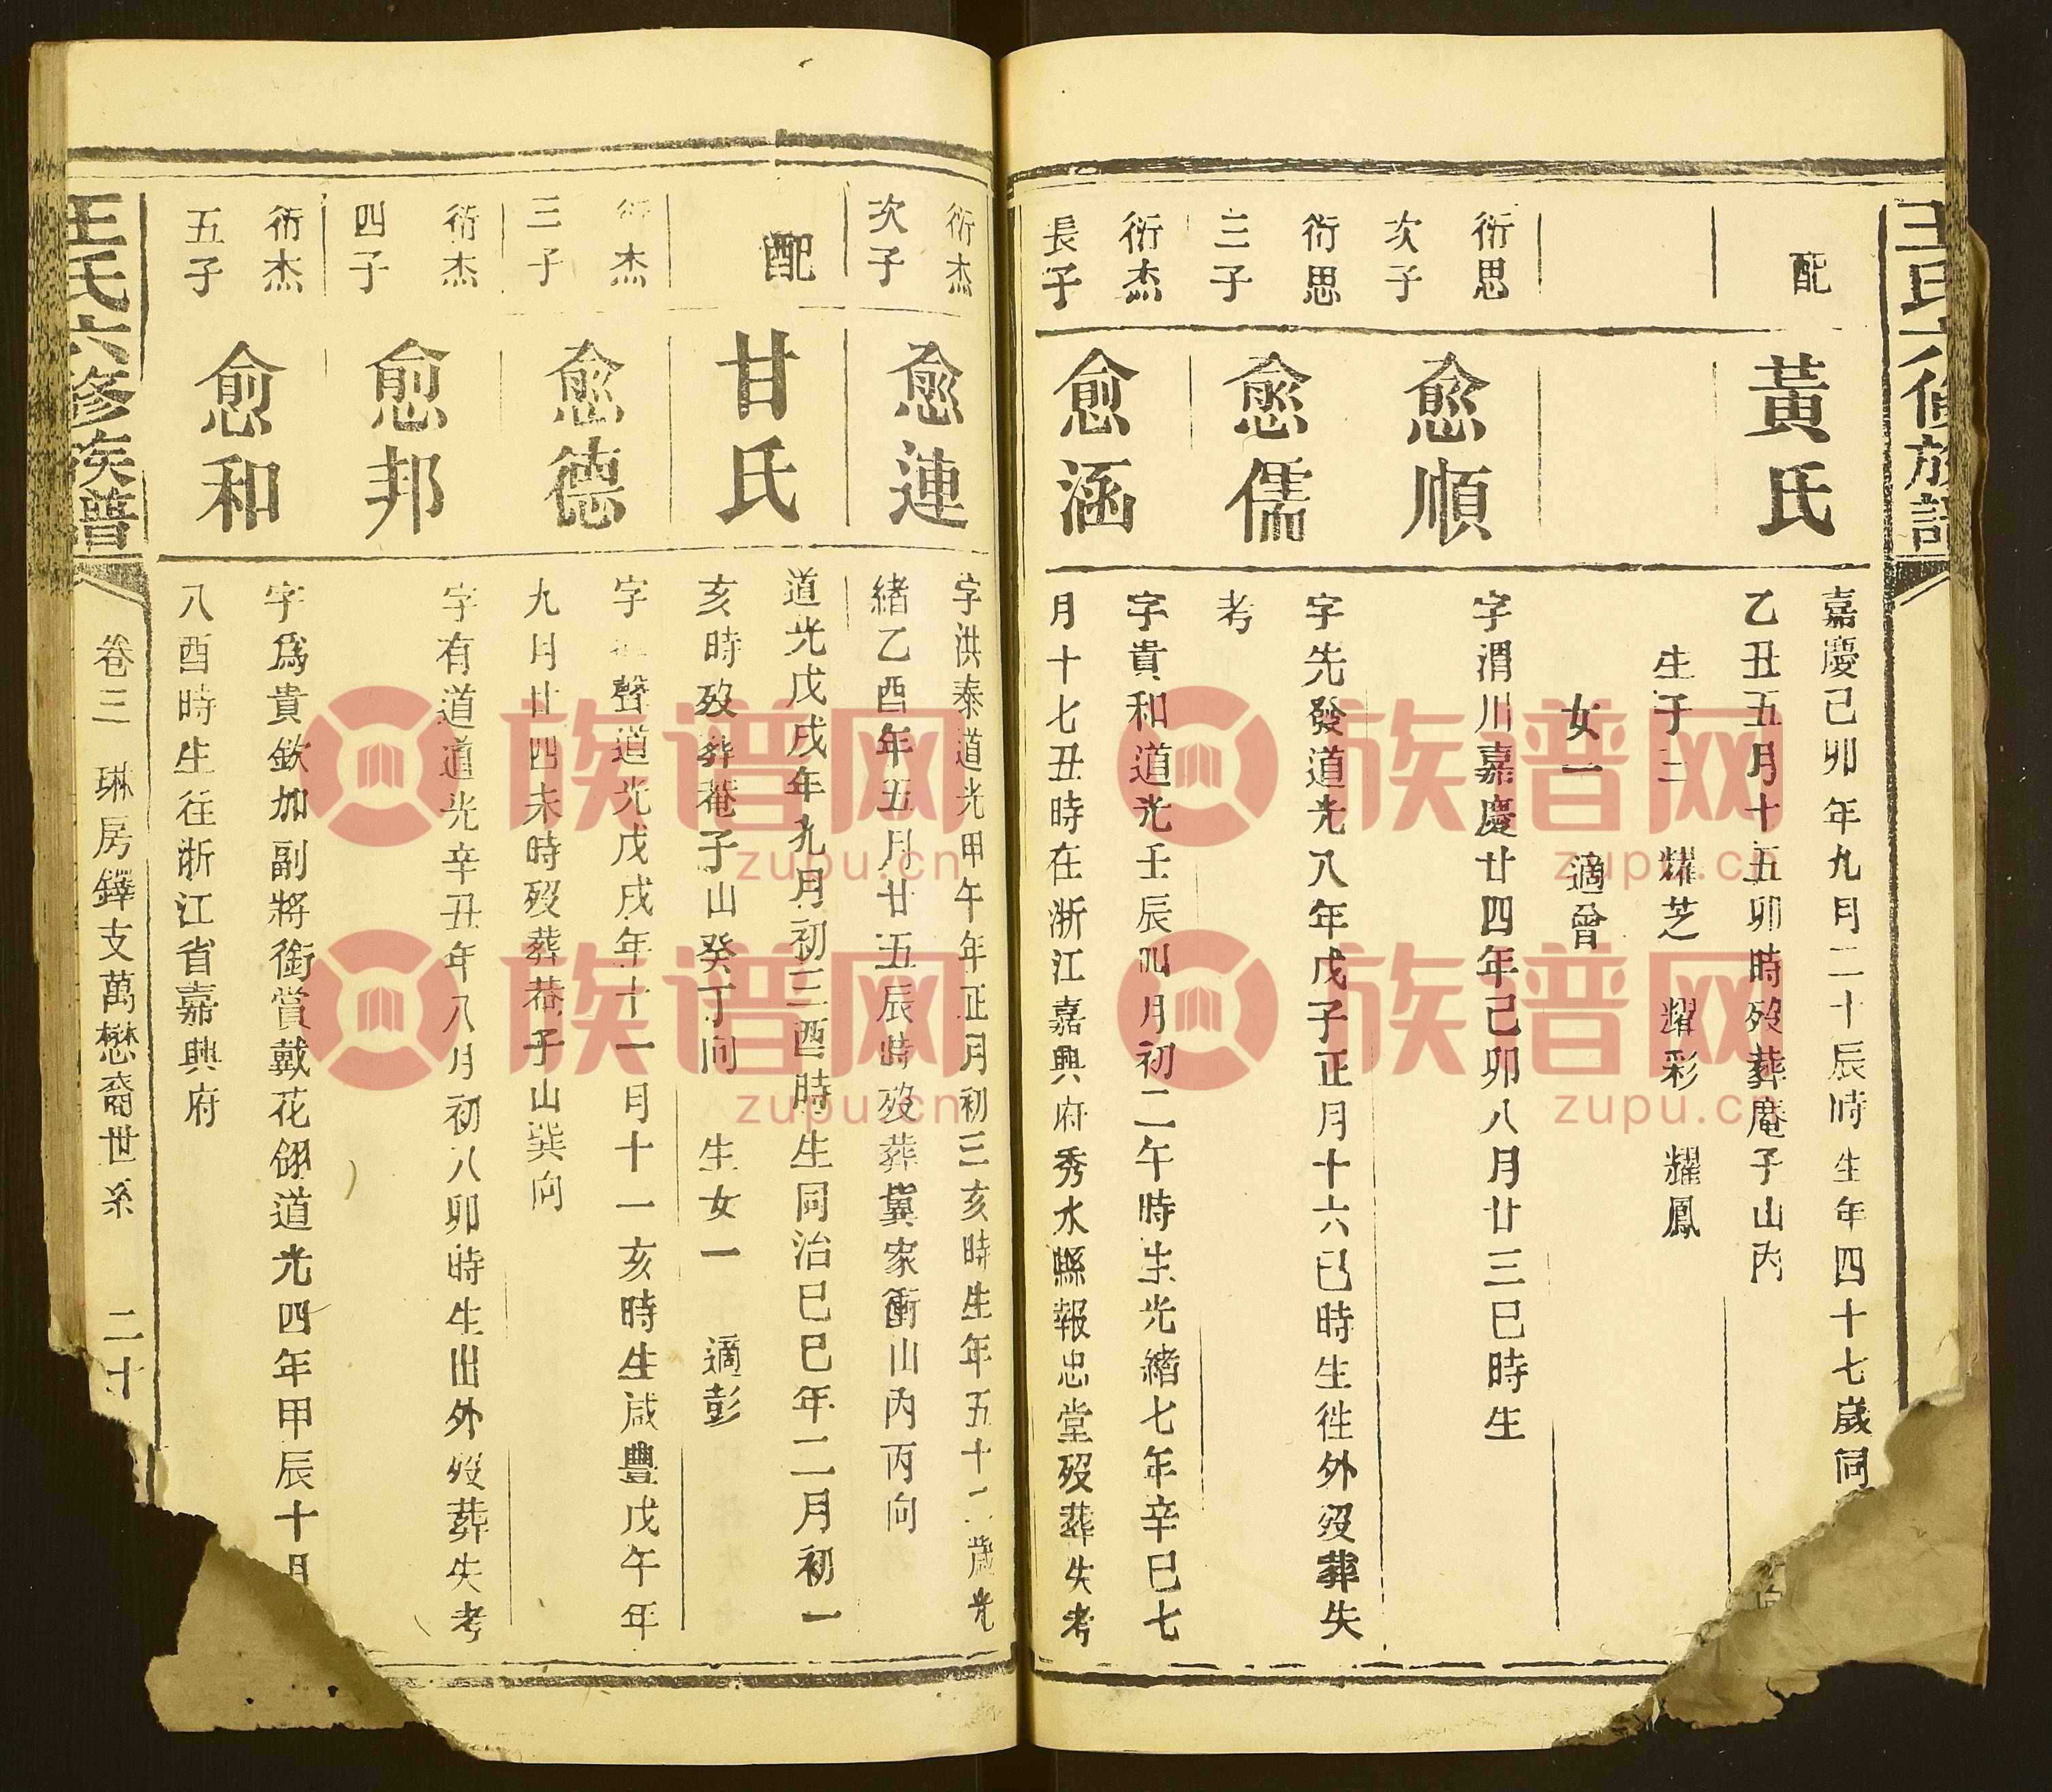 王氏六修族譜
配
黃氏
嘉慶己卯年九月二十辰時生年四十七歲同
乙丑五月十五卯時歿葬庵子山內
向
生子三 耀芝 耀彩 耀鳳
女一 適曾
衍思
次子
愈順
字渭川嘉慶廿四年己卯八月廿三巳時生
衍思
三子
愈儒
字先發道光八年戊子正月十六巳時生徃外歿葬失
考
衍杰
長子
愈涵
字貴和道光壬辰四月初二午時生光緒七年辛巳七
月十七丑時在浙江嘉興府秀水縣報忠堂歿葬失考
衍杰
次子
愈連
字洪泰道光甲午年正月初三亥時生年五十二歲光
緒乙酉年五月廿五辰時歿葬冀家衝山內丙向
配
甘氏
道光戊戌年九月初三酉時生同治巳巳年二月初一
亥時歿葬菴子山癸丁向 生女一 適彭
衍杰
三子
愈德
字 聲道光戊戌年十一月十一亥時生咸豐戊午年
九月廿四未時歿葬菴子山巽向
衍杰
四子
愈邦
字有道道光辛丑年八月初八卯時生出外歿葬失考
衍杰
五子
愈和
字爲貴欽加副將銜賞戴花翎道光四年甲辰十月
八酉時生往浙江省嘉興府
王氏六修族譜
卷三 琳房鐸支萬懋裔世系 二十
族谱网
zupu.cn
族谱网
zupu.cn
族谱网
zupu.cn
族谱网
zupu.cn